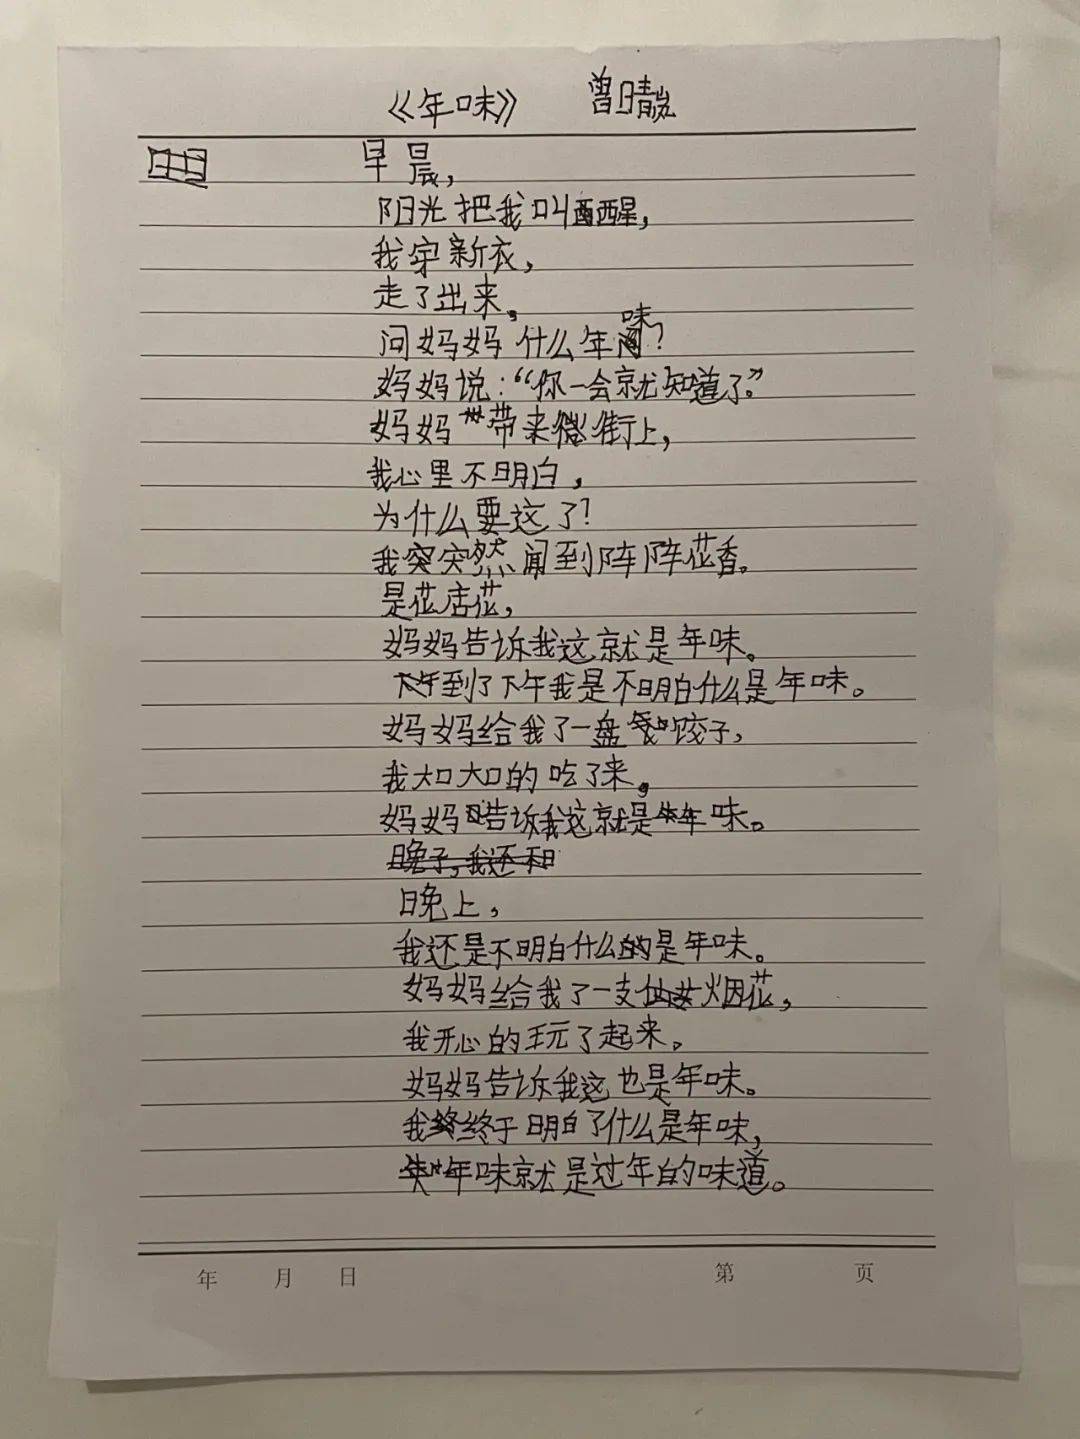 《年味》 曾晴岚
早晨，
阳光把我叫醒，
我穿新衣，
走了出来。
问妈妈什么年味？
妈妈说：“你一会就知道了。”
妈妈带来街上，
我心里不明白，
为什么要这了？
我突然闻到阵阵花香。
是花店花，
妈妈告诉我这就是年味。
到了下午我是不明白什么是年味。
妈妈给我了一盘饺子，
我大口大口的吃了来。
妈妈告诉我这就是年味。
晚上，
我还是不明白什么的是年味。
妈妈给我了一支仙女烟花，
我开心的玩了起来。
妈妈告诉我这也是年味。
我终于明白了什么是年味，
年味就是过年的味道。
年 月 日 第 页